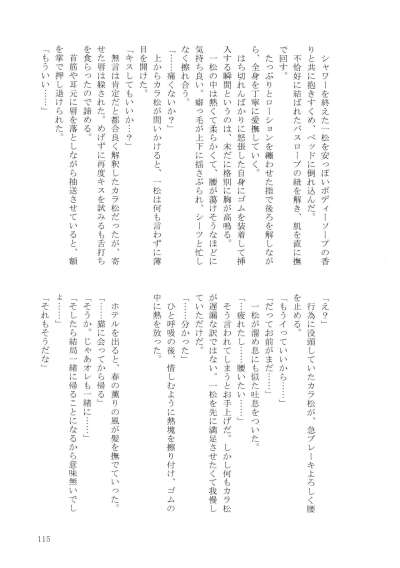 シャワーを終えた一松を安っぽいボディーソープの香
りと共に抱きすくめ、ベッドに倒れ込んだ。
不恰好に結ばれたバスローブの紐を解き、肌を直に撫
で回す。
たっぷりとローションを纏わせた指で後ろを解しなが
ら、全身を丁寧に愛撫していく。
はち切れんばかりに怒張した自身にゴムを装着して挿
入する瞬間というのは、未だに格別に胸が高鳴る。
一松の中は熱くて柔らかくて、腰が蕩けそうなほどに
気持ち良い。癖っ毛が上下に揺さぶられ、シーツと忙し
なく擦れ合う。
「……痛くないか？」
上からカラ松が問いかけると、一松は何も言わずに薄
目を開けた。
「キスしてもいいか……？」
無言は肯定だと都合良く解釈したカラ松だったが、寄
せた唇は躱された。めげずに再度キスを試みるも舌打ち
を食らったので諦める。
首筋や耳元に唇を落としながら抽送させていると、額
を掌で押し退けられた。
「もういい……」
「え？」
行為に没頭していたカラ松が、急ブレーキよろしく腰
を止める。
「もうイっていいから……」
「だってお前がまだ……」
一松が溜め息にも似た吐息をついた。
「……疲れたし……腰痛い……」
そう言われてしまうとお手上げだ。しかし何もカラ松
が遅漏な訳ではない、一松を先に満足させたくて我慢し
ていただけだ。
「……分かった」
ひと呼吸の後、惜しむように熱塊を擦り付け、ゴムの
中に熱を放った。
ホテルを出ると、春の薫りの風が髪を撫でていった。
「……猫に会ってから帰る」
「そうか。じゃあオレも一緒に……」
「そしたら結局一緒に帰ることになるから意味無いでし
ょ……」
「それもそうだな」
115